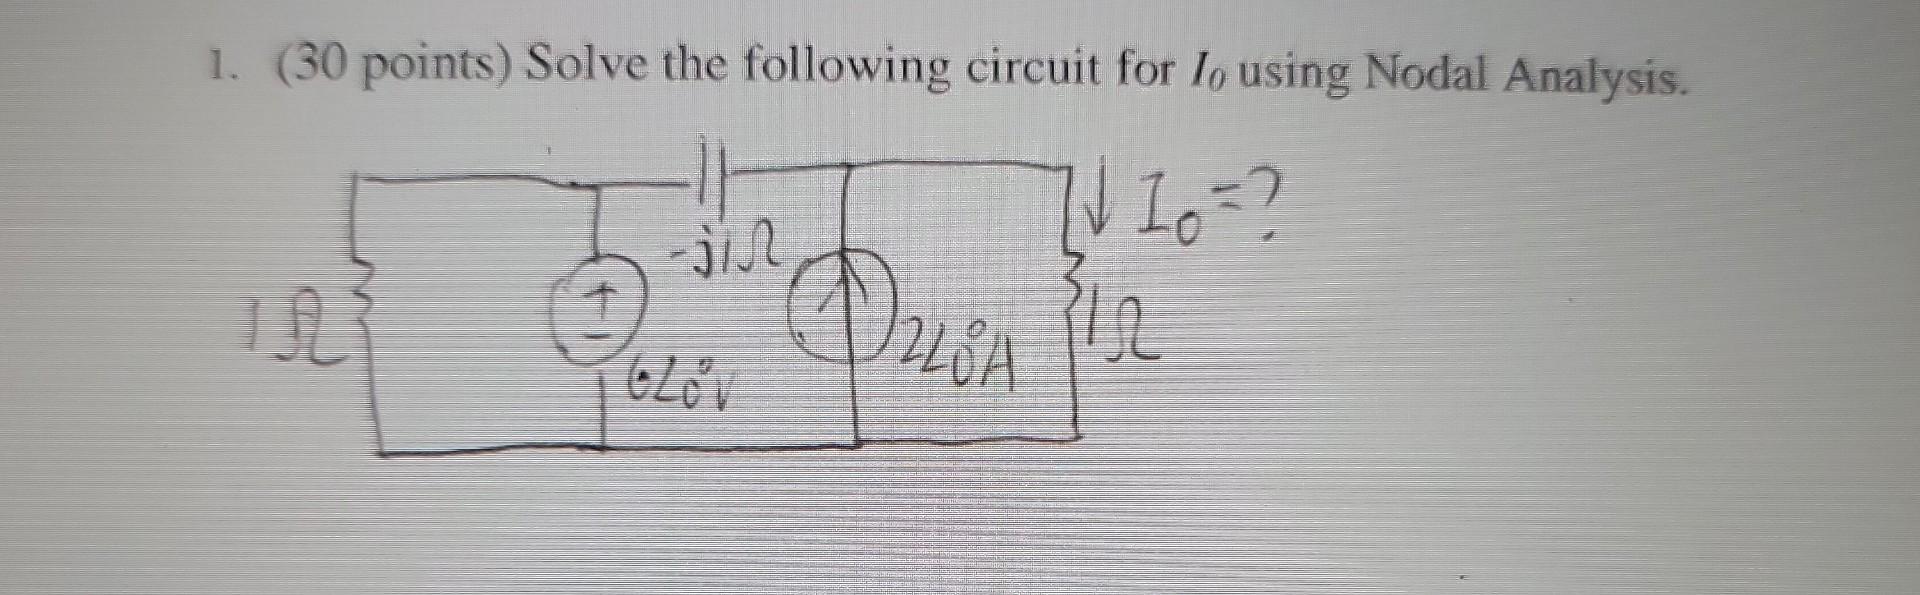 1. (30 points) Solve the following circuit for I₀ using Nodal Analysis.
↓ I₀=?
-j1Ω
+
1Ω
-
2∠0°A
1Ω
6∠0°V